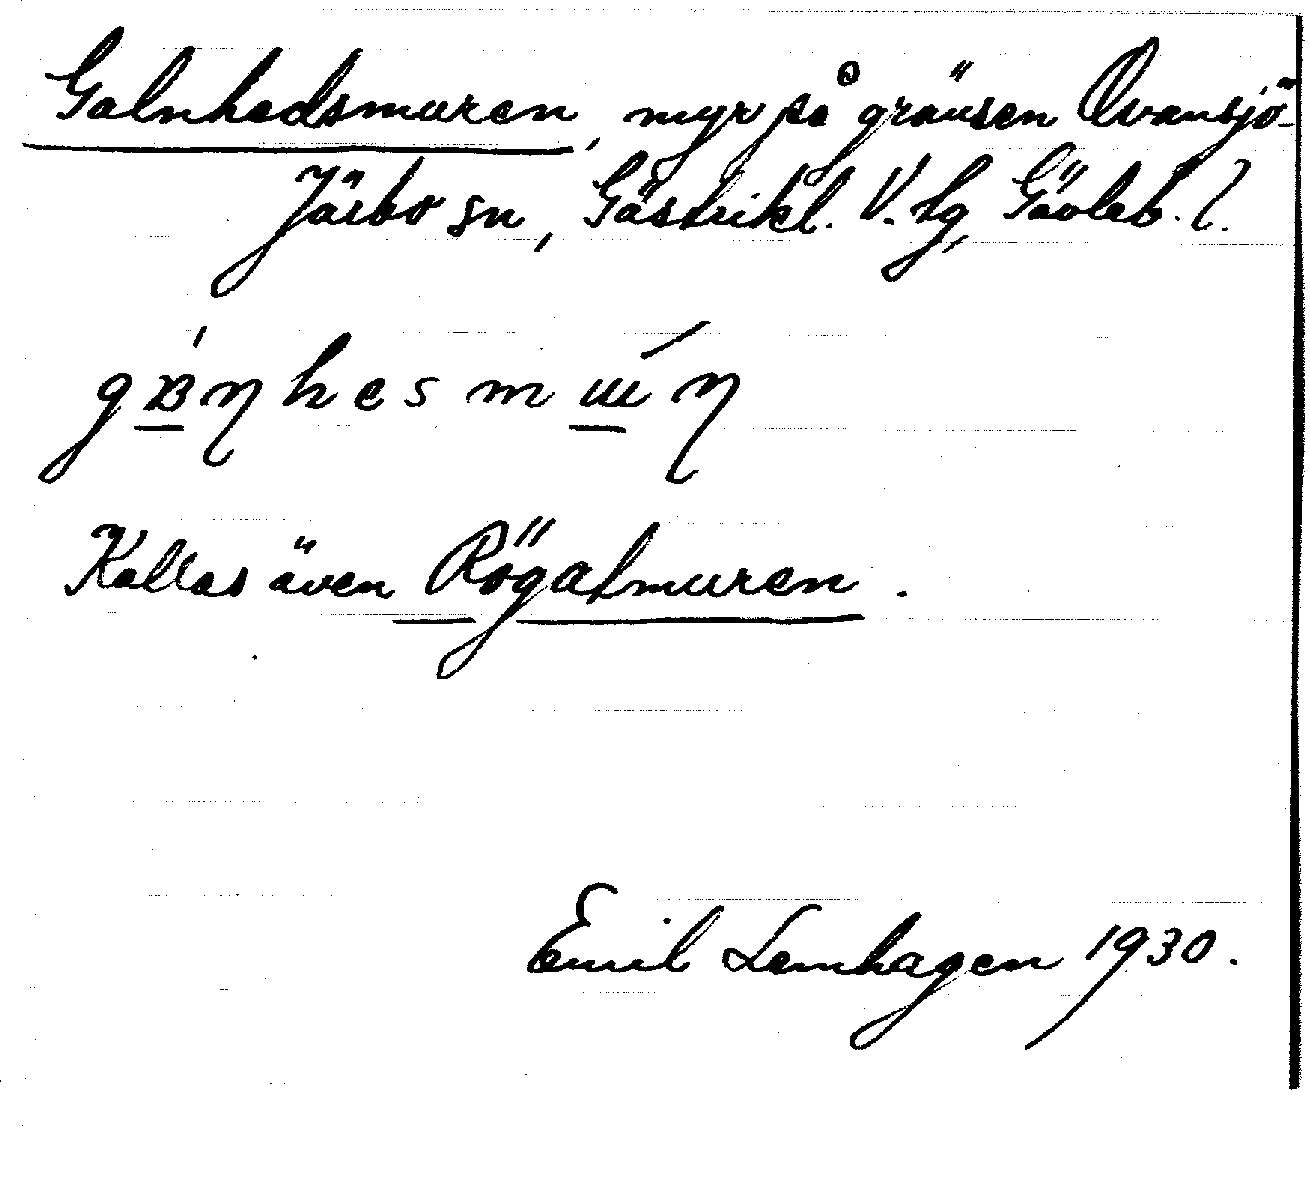 Galnhedsmuren, myr på gränsen Ovansjö-
Järbo sn, Gästrikl. V. tg, Gävleb. l.
Kallas även Rögatmuren.
Emil Lenhagen 1930.